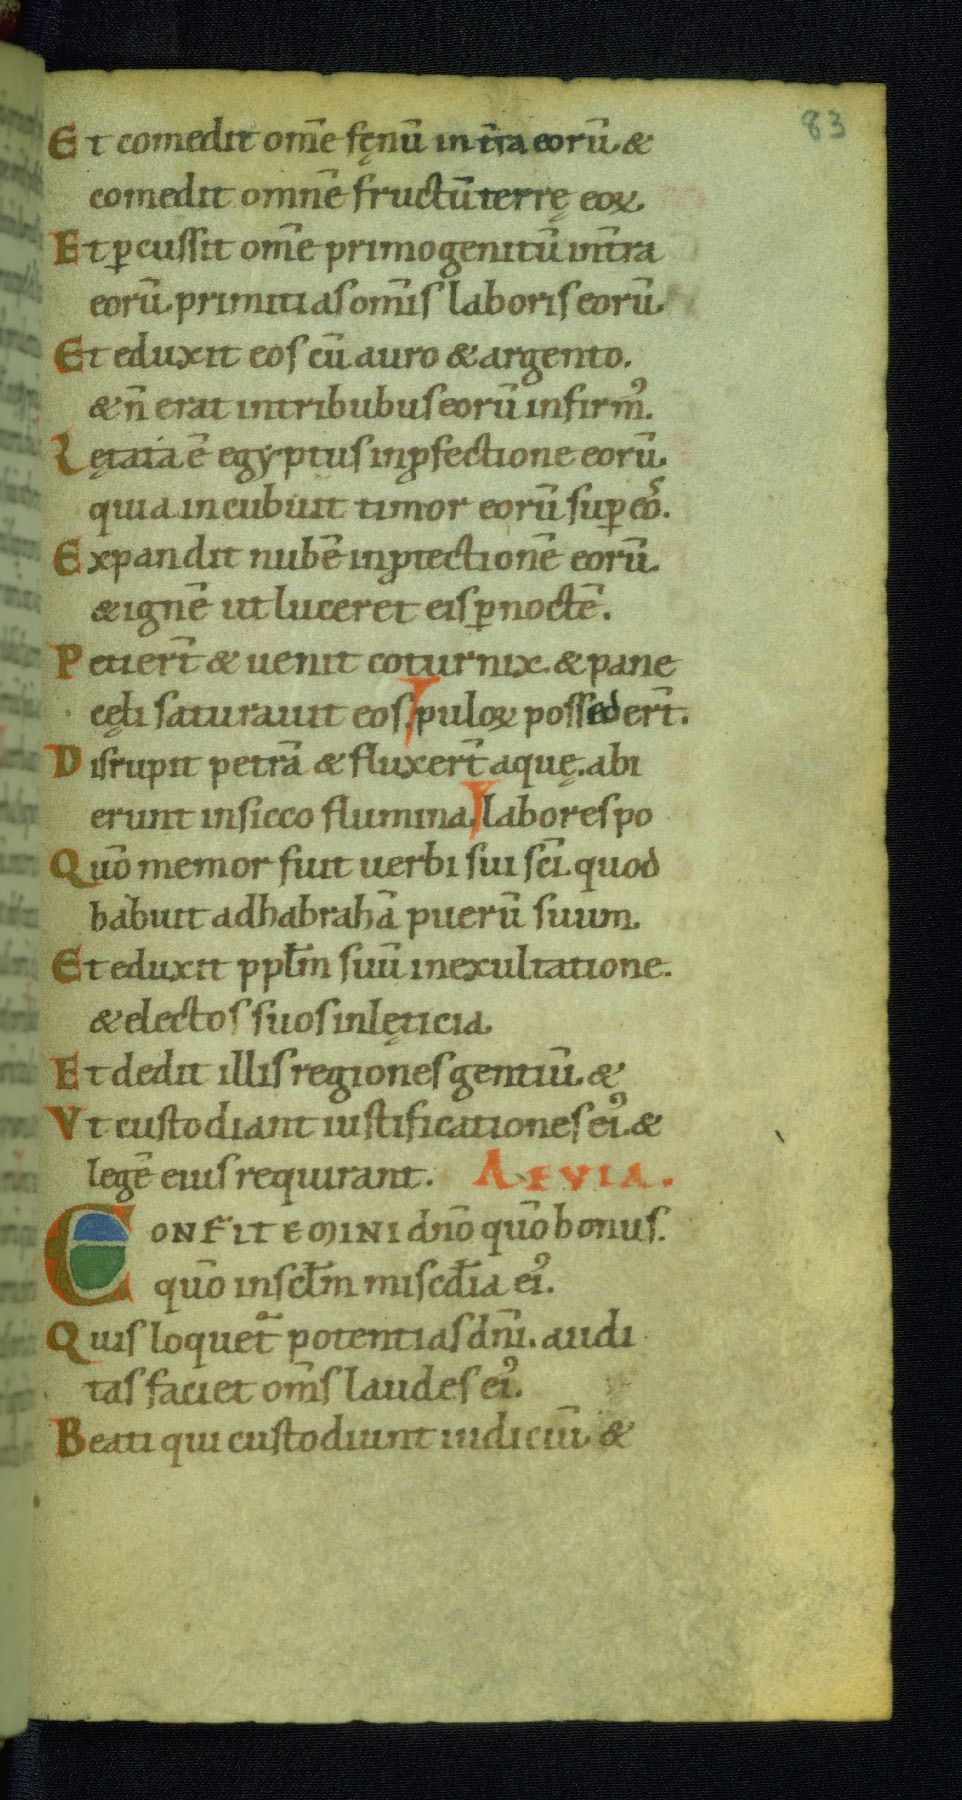 83
Et comedit om̄e fęnū in t̄ra eorū. &
comedit omnē fructū terrę eoꝝ.
Et ꝑcussit om̄e primogenitū in t̄ra
eorū. primitias om̄is laboris eorū.
Et eduxit eos cū auro & argento.
& n̄ erat in tribubus eorū infirmꝰ.
Lętata ē egyptus in ꝓfectione eorū.
quia incubuit timor eorū suꝑ eoˢ.
Expandit nubē in ꝓtectionē eorū.
& ignē ut luceret eis ꝑ noctē.
Petiert̄ & uenit coturnix. & pane
cęli saturauit eos. puloꝝ possedert̄.
Disrupit petrā & fluxert̄ aquę. abi
erunt in sicco flumina. labores po
Quō memor fuit uerbi sui sc̄i. quod
habuit ad habrahā puerū suum.
Et eduxit ppl̄m suū in exultatione.
& electos suos in lęticia.
Et dedit illis regiones gentiū. &
Vt custodiant iustificationes eiꝰ. &
legē eius requirant. AEVIA.
CONFITEMINI dn̄o quō bonus.
quō in scl̄m miscd̄ia eiꝰ.
Quis loquet᷑ potentias dn̄i. audi
tas faciet om̄s laudes eiꝰ.
Beati qui custodiunt iudiciū. &